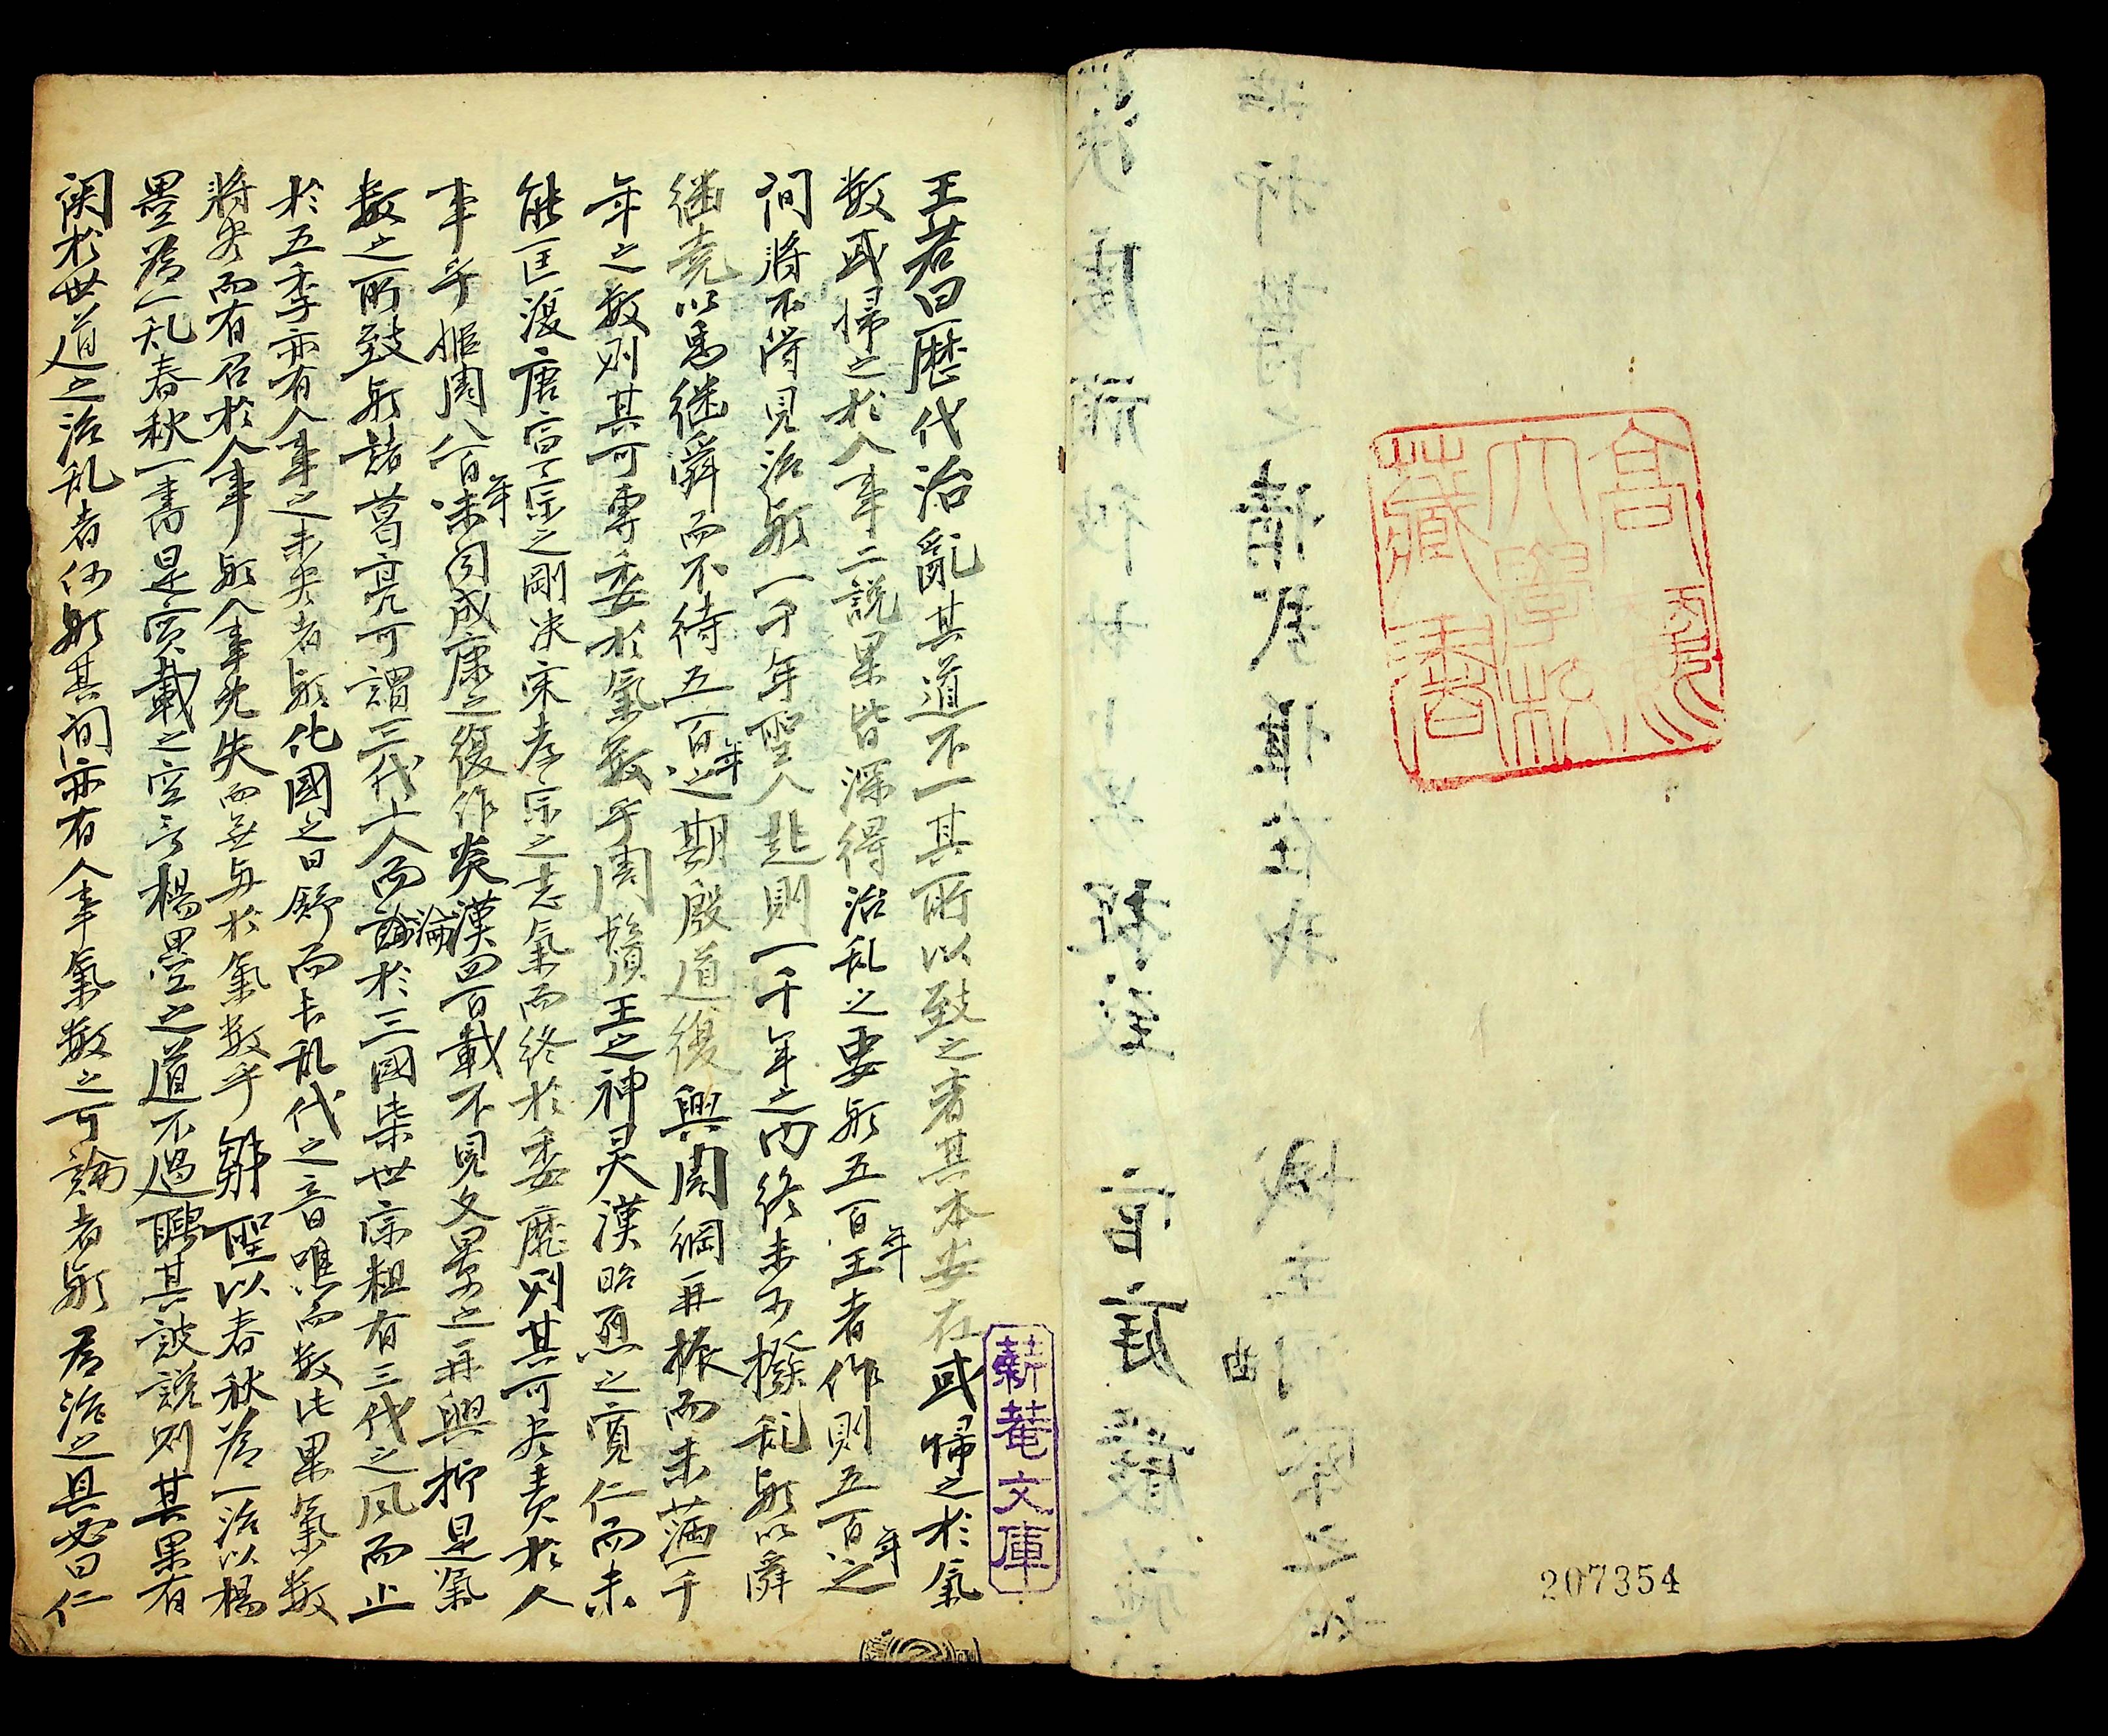 王若曰歷代治亂其道不一其所以致之者其本安在或歸之於氣
数或歸之於人事二說果皆深得治乱之要歟五百年王者作則五百年之
间將不得見治歟一千年聖人起則一千年之内終未可撥乱歟以舜
继堯以禹継舜而不待五百年之期殷道復興周綱再振而未滿千
年之数則其可專委於氣數乎周髭王之神灵漢昭烈之寬仁而未
能匡復唐宣宗之剛决宋孝宗之志氣而終於委靡則其可專責於人
事乎姬周八百年未闻成康之復作炎漢四百載不見文景之再興抑是氣
數之所致歟諸葛亮可謂三代上人而淪於三國柴世宗粗有三代之风而止
於五季亦有人事之未尽者歟化國之日舒而長乱代之音噍而数此果氣数
將尽而有召於人事歟人事先失而無与於氣数乎鄒聖以春秋為一治以楊
墨為一乱春秋一書是實載之空言楊墨之道不過騁其詖說則其果有
関於世道之治乱者何歟其间亦有人事氣数之可論者歟為治之具必曰仁
薪菴文庫
高麗大學校藏書
207354